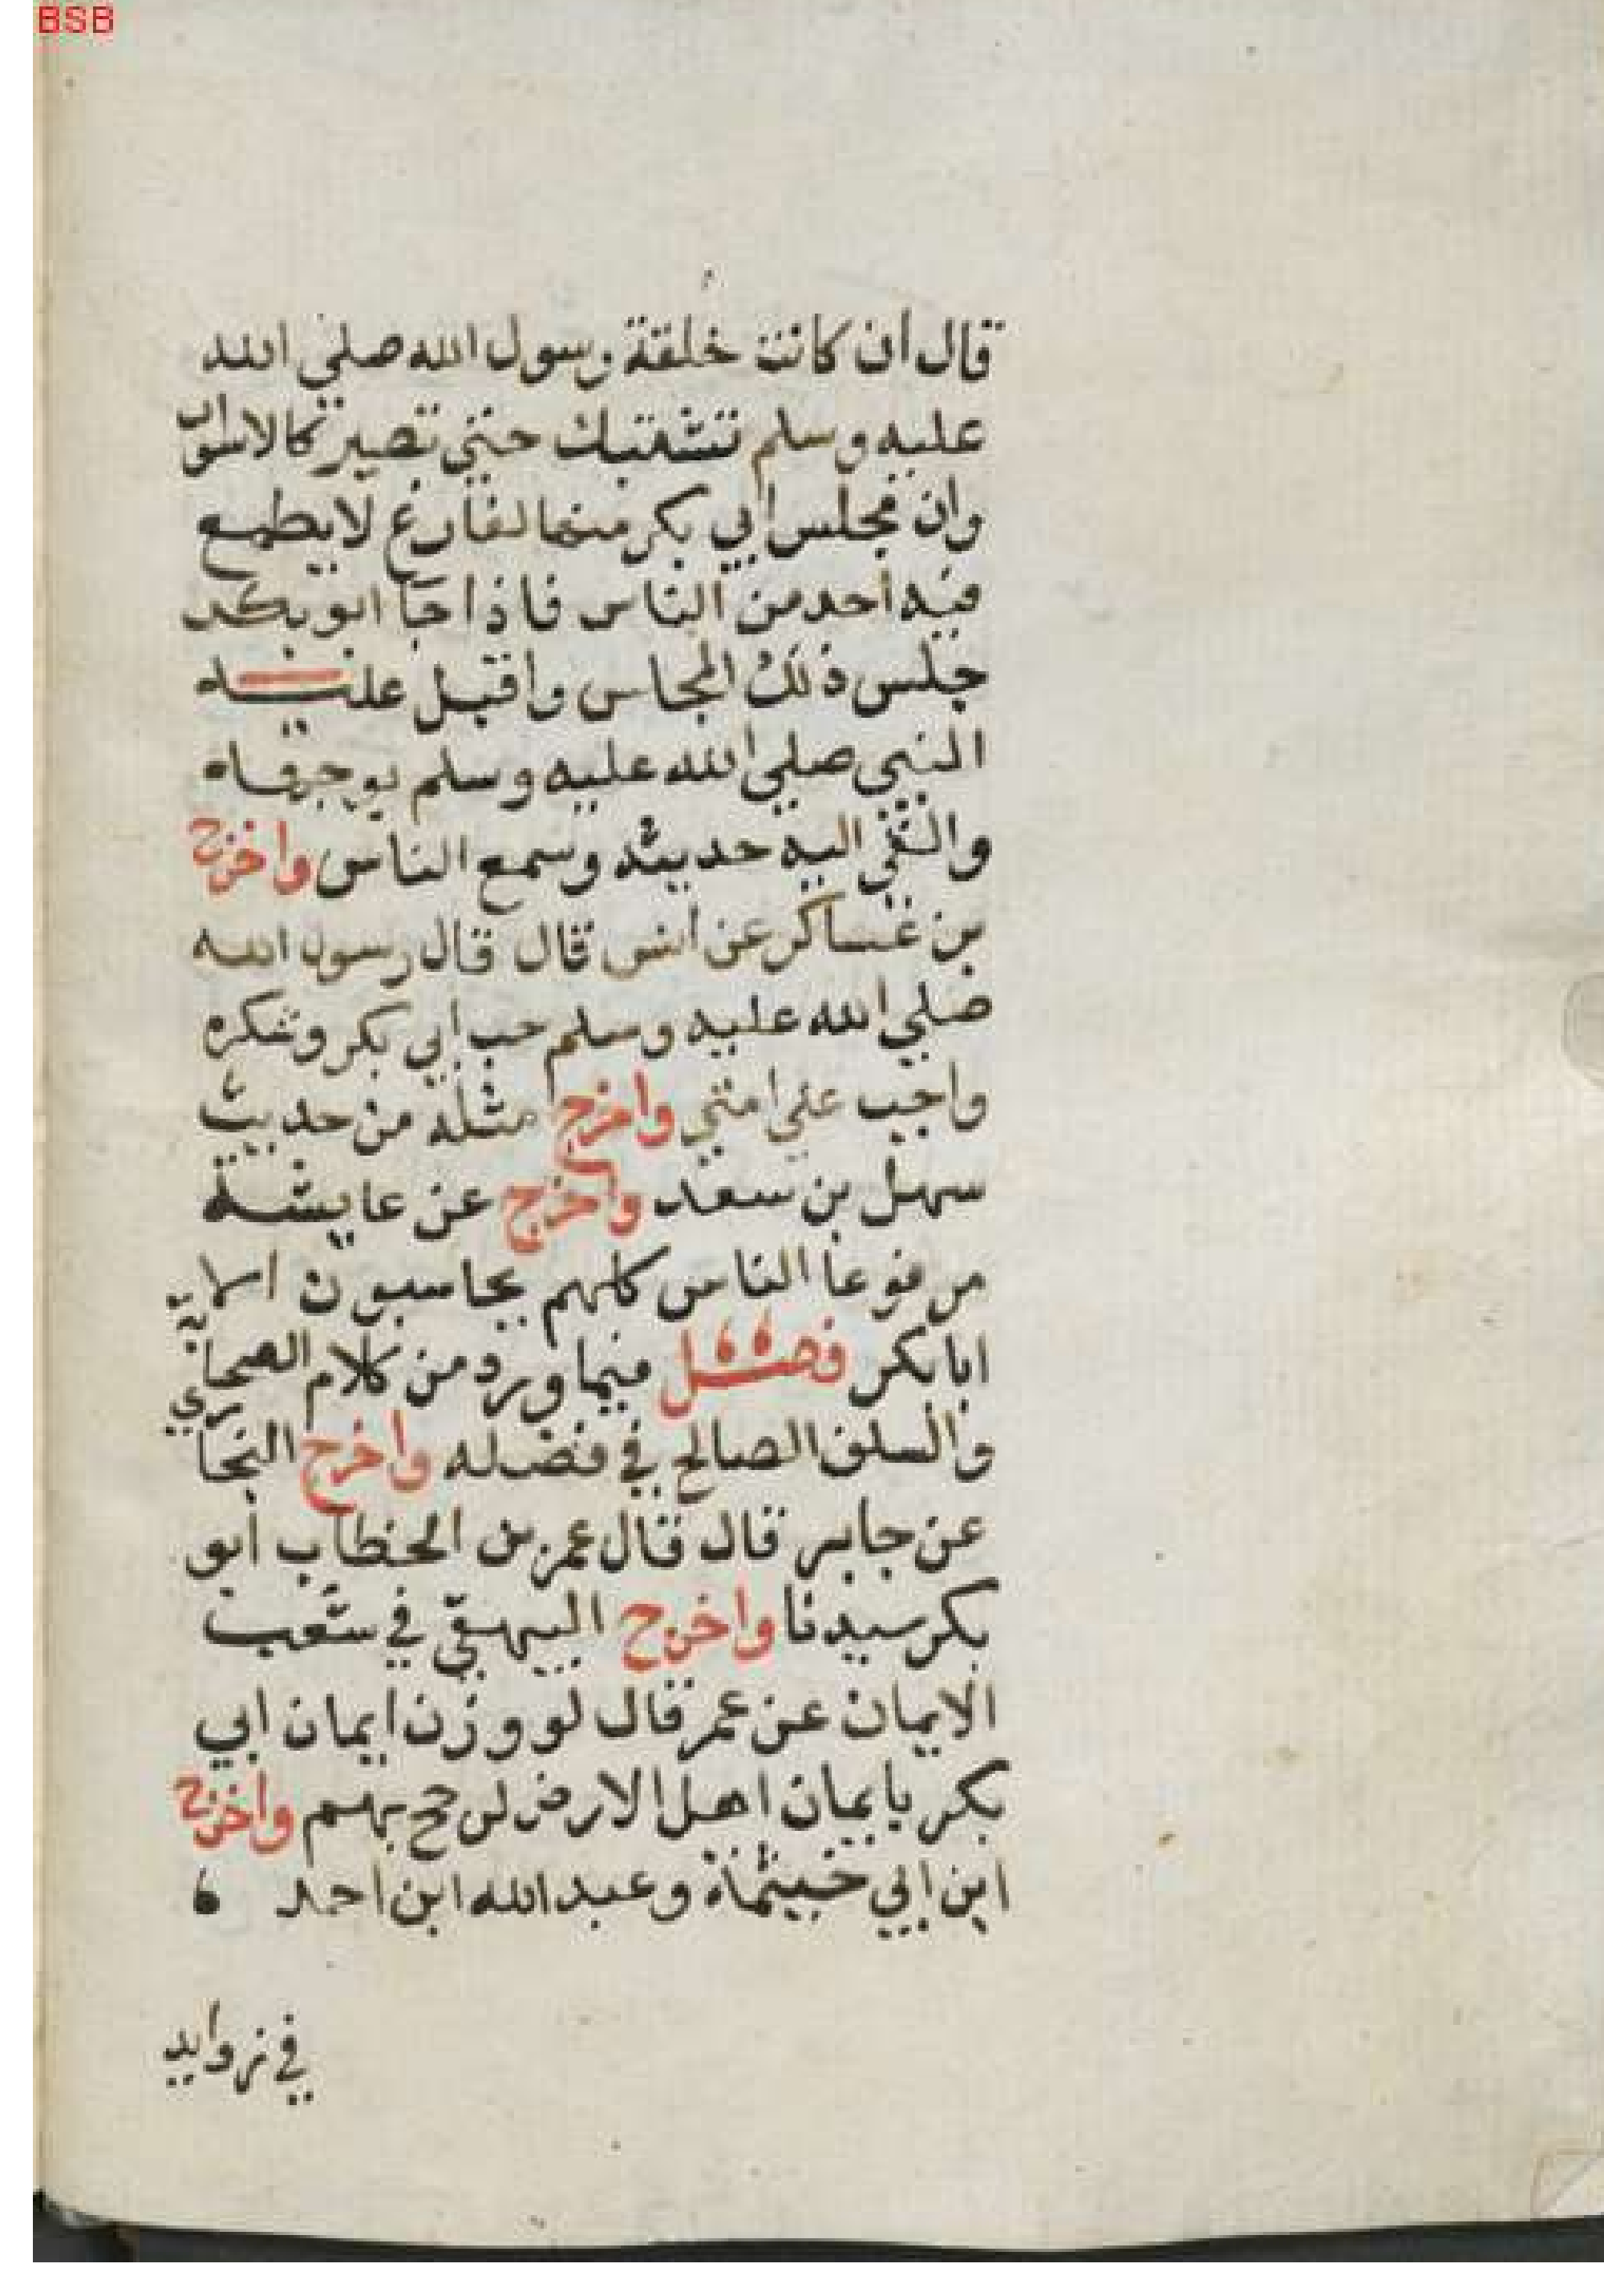 BSB
قال ان كانت خلقة رسول الله صلي الله
عليه وسلم تتشتبك حتي تصير كالاسوار
وان مجلس ابي بكر منها لفارغ لا يطمع
فيه احد من الناس فاذا جا ابو بكر
جلس ذلك المجلس واقبل عليه
النبي صلي الله عليه وسلم بوجهه
والقي اليه حديثه وسمع الناس واخرج
بن عساكر عن انس قال قال رسول الله
صلي الله عليه وسلم حب ابي بكر وشكره
واجب علي امتي واخرج مثله من حديث
سهل بن سعد واخرج عن عايشة
مرفوعا الناس كلهم يحاسبون الا
ابا بكر فصل فيما ورد من كلام الصحابة
والسلف الصالح في فضله واخرج البخاري
عن جابر قال قال عمر بن الخطاب ابو
بكر سيدنا واخرج البيهقي في شعب
الايمان عن عمر قال لو وزن ايمان ابي
بكر بايمان اهل الارض لرجح بهم واخرج
ابن ابي خيثمة وعبد الله ابن احمد
في زوايد